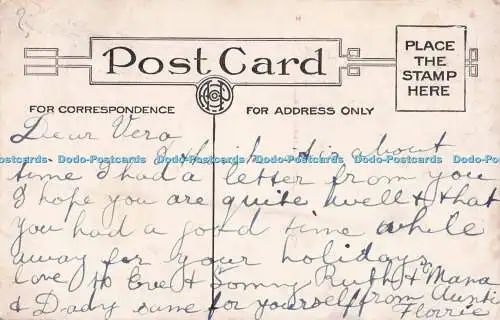 Post Card
PLACE
THE
STAMP
HERE
FOR CORRESPONDENCE
FOR ADDRESS ONLY
Dear Vera
I think it is about
Dodo-Postcards Dodo-Postcards Dodo-Postcards Dodo-Postcards Dodo-Postcards
time I had a letter from you
I hope you are quite well & that
you had a good time while
away for your holidays
love to Eve & Tommy Ruth & Mama
& Dady same for yourself from Aunti
Florrie